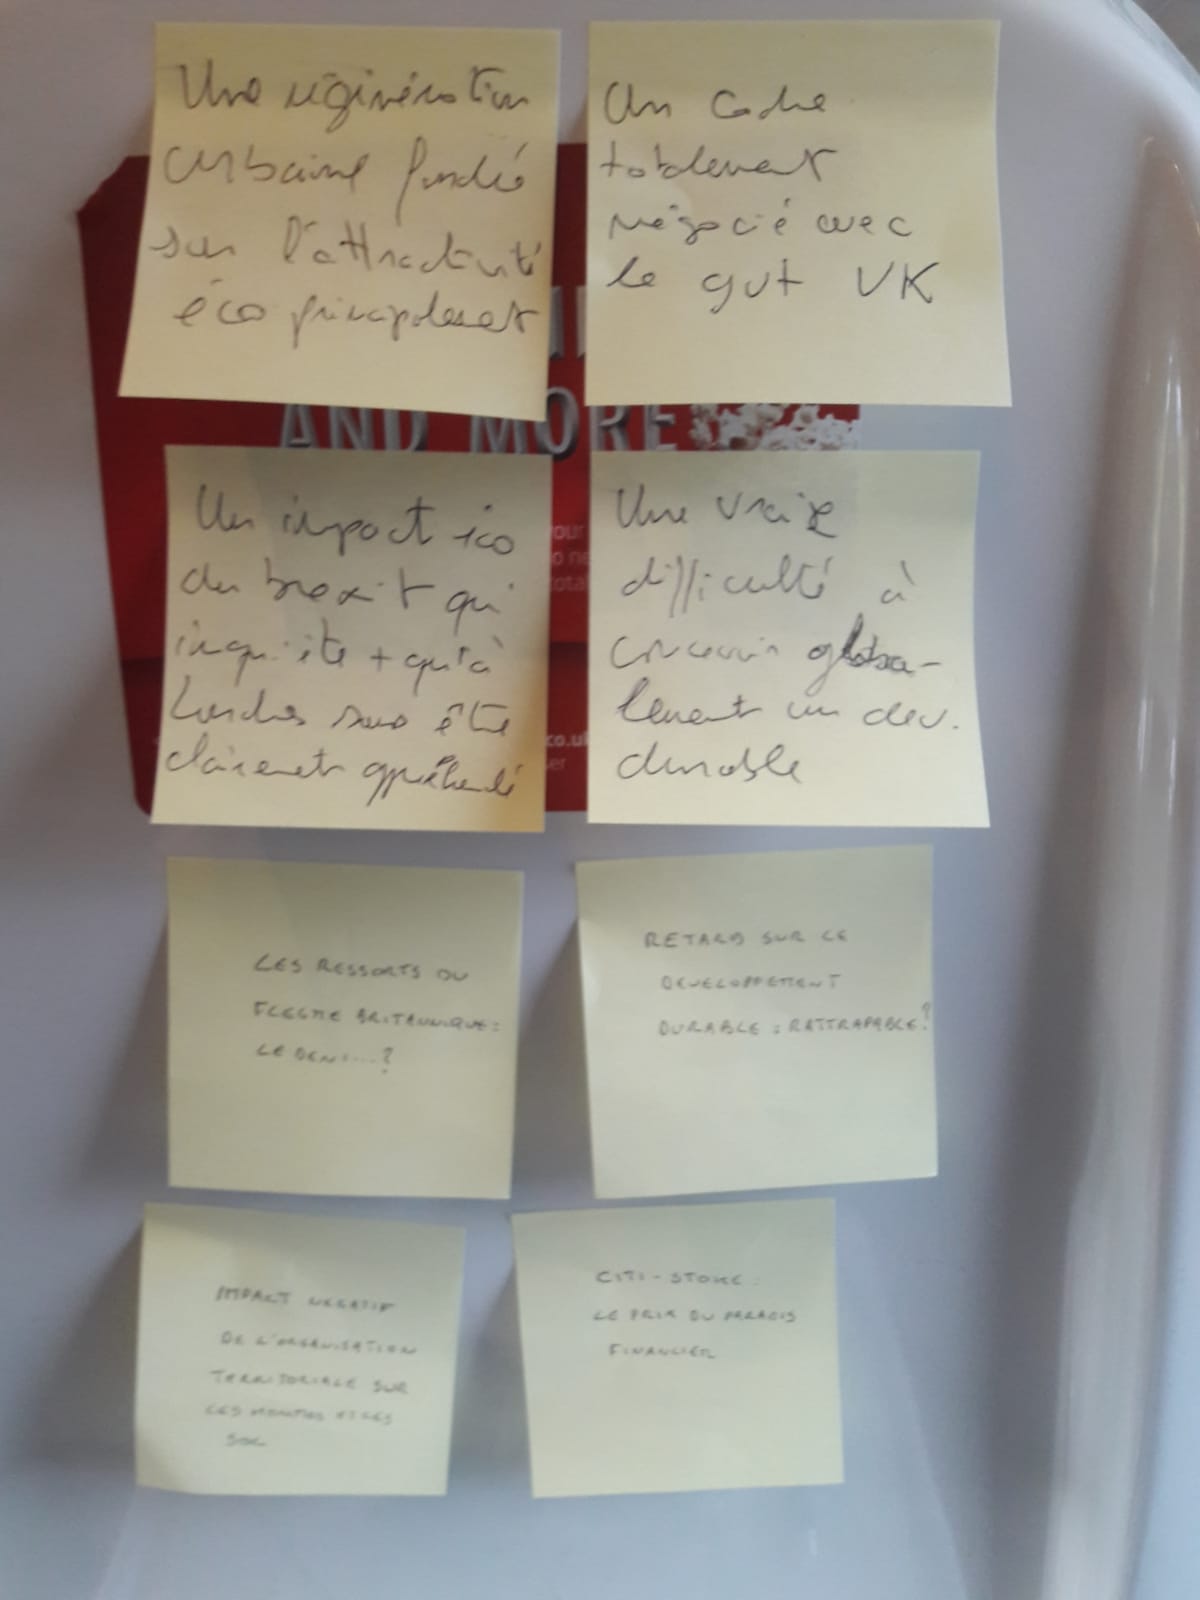 Une régénération
urbaine fondée
sur l'attractivité
éco principalement
Un cadre
totalement
négocié avec
le gvt UK
AND MORE
Un impact éco
du brexit qui
inquiète + qu'à
Londres sans être
clairement appréhendé
your
co.uk
Une vraie
difficulté à
concevoir globa-
lement un dev.
durable
LES RESSORTS DU
FLEGME BRITANNIQUE :
LE DENI...?
RETARD SUR LE
DEVELOPPEMENT
DURABLE : RATTRAPABLE ?
IMPACT NEGATIF
DE L'ORGANISATION
TERRITORIALE SUR
LES
CITI-STOKE :
LE PRIX DU PARADIS
FINANCIER